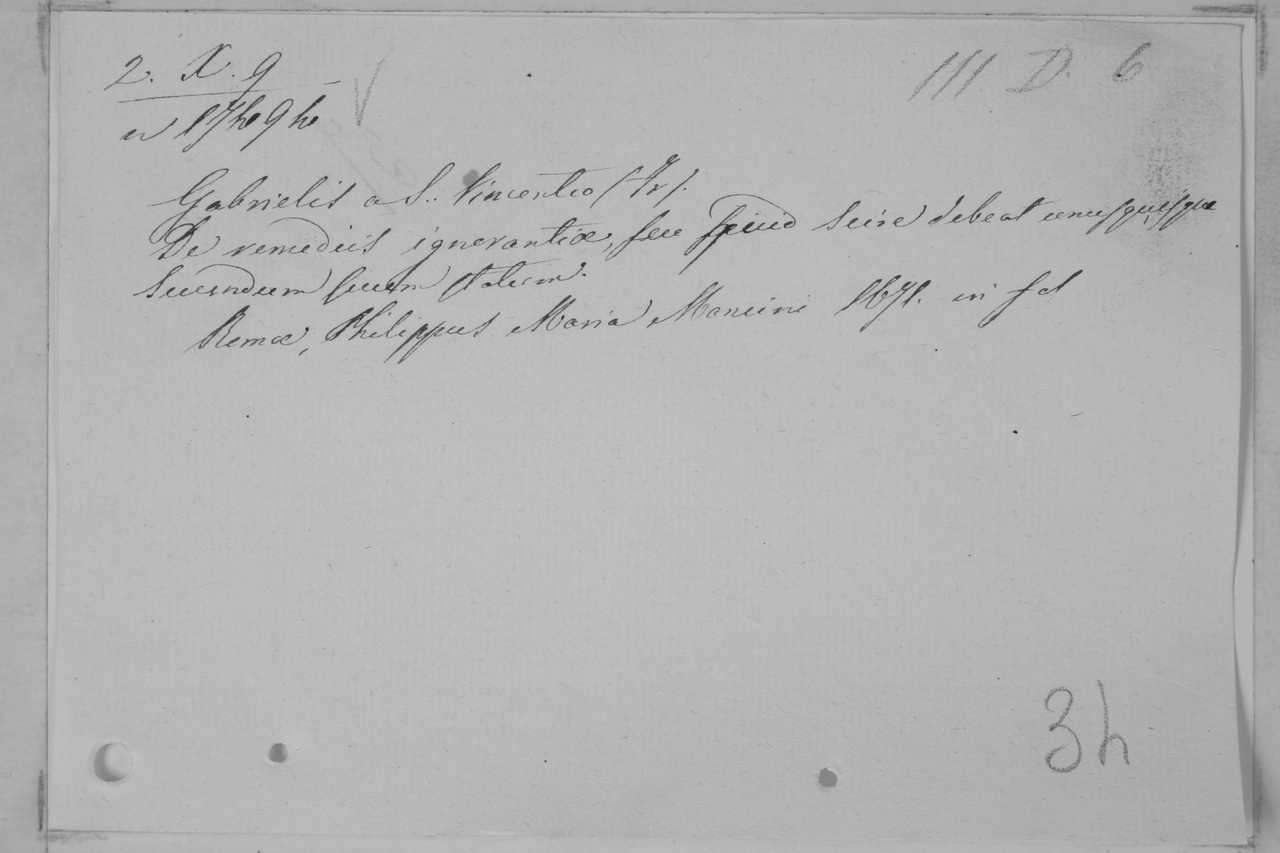 2. X. 9
III D. 6
Gabrielis a S. Vincentio (Fr).
De remediis ignorantiæ, seu quid scire debeat unusquisque
secundum suum statum.
Romæ, Philippus Maria Mancini 1671. in fol
3h